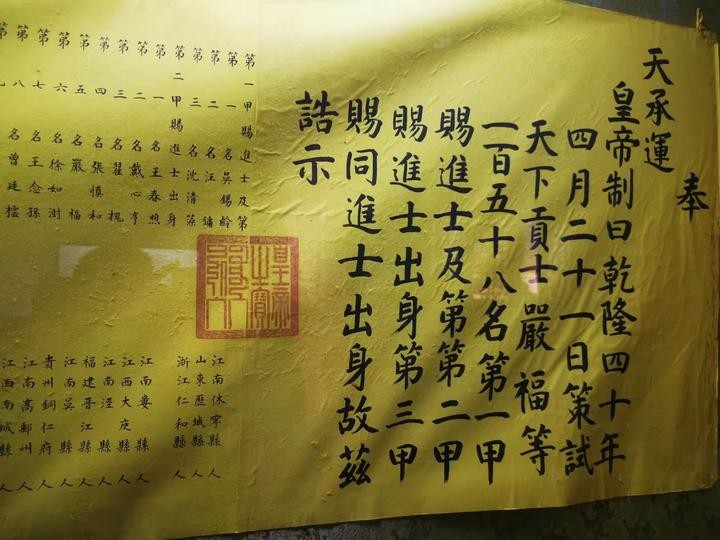 奉
天承運
皇帝制曰乾隆四十年
四月二十一日策試
天下貢士嚴福等
一百五十八名第一甲
賜進士及第第二甲
賜進士出身第三甲
賜同進士出身故茲
誥示
皇帝之寶
第一甲賜進士及第
第一名吳錫齡 江南休寧縣人
第二名汪鏞 山東歷城縣人
第三名沈清藻 浙江仁和縣人
第二甲賜進士出身
第一名王春煦 江南婁縣人
第二名戴心亨 江西大庾縣人
第三名翟槐 江南涇縣人
第四名張慎和 福建晉江縣人
第五名嚴福 江南吳縣人
第六名徐如澍 貴州銅仁府人
第七名王念孫 江南高郵州人
第八名曾廷橒 江西南城縣人
第九